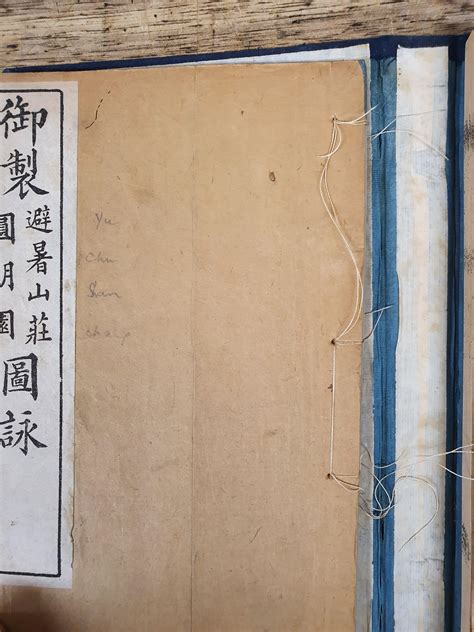 御製
避暑山莊
圓明園
圖詠
Yu
Chu
Shan